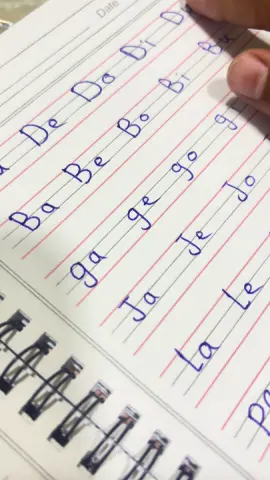 Date
De Do Di
Ba Be Bo Bi Bu
ga ge go
Ja Je Jo
La Le